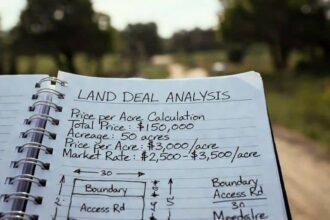 LAND DEAL ANALYSIS
Price per Acre Calculation
Total Price: $150,000
Acreage: 50 acres
Price per Acre: $3,000/acre
Market Rate: $2,500 - $3,500/acre
30
Boundary
Access Rd
Boundary
Access Rd
30